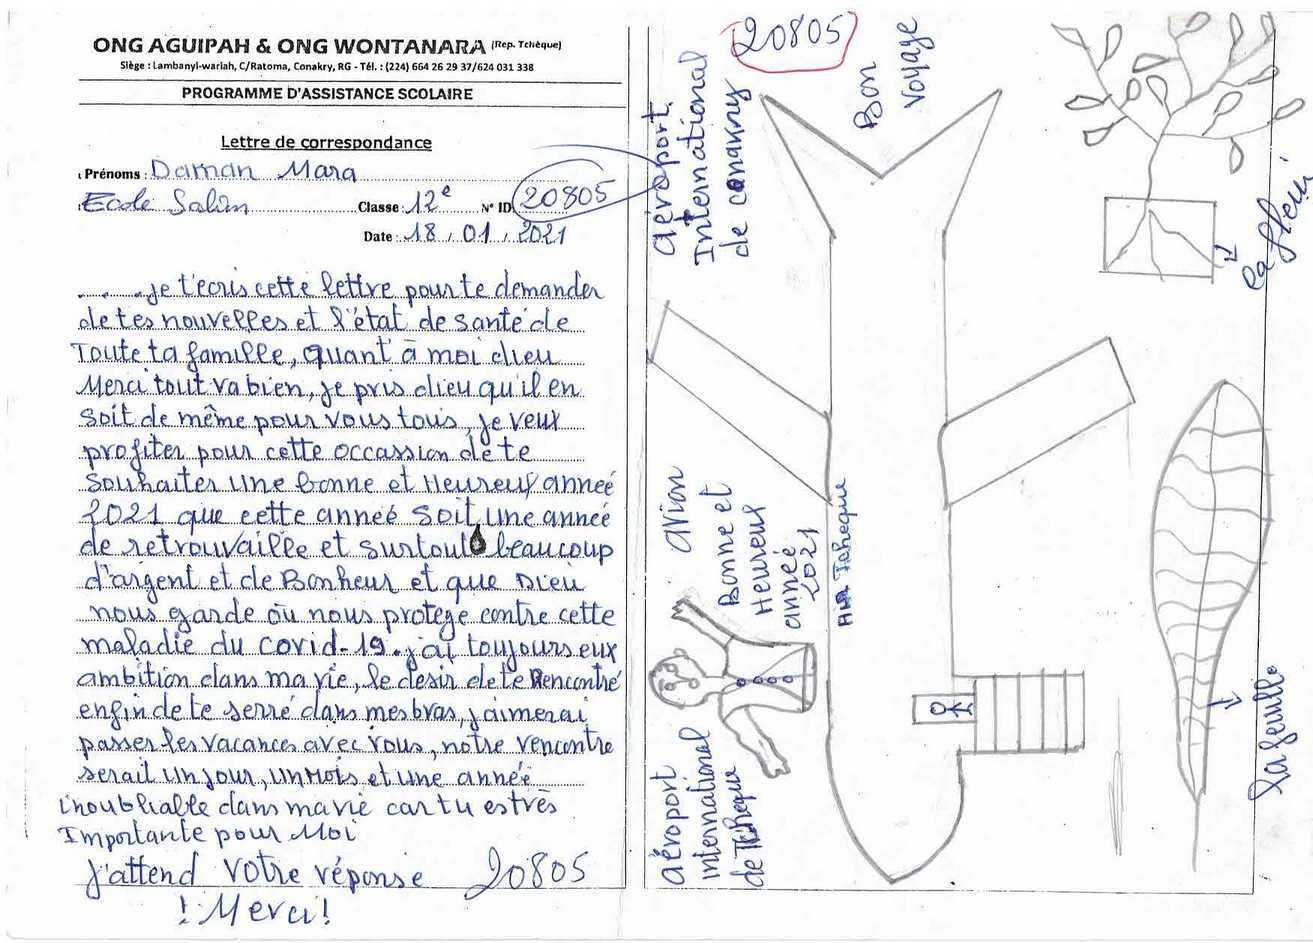 ONG AGUIPAH & ONG WONTANARA (Rep. Tchèque)
Siège : Lambanyi-wariah, C/Ratoma, Conakry, RG - Tél. : (224) 664 26 29 37/624 031 338
PROGRAMME D'ASSISTANCE SCOLAIRE
Lettre de correspondance
Prénoms : Daman Mara
Ecole Salim Classe : 12e N° ID 20805
Date : 18 / 01 / 2021
je t'ecris cette lettre pour te demander
de tes nouvelles et l'état de santé de
Toute ta famille, quant à moi dieu
Merci tout va bien, je pris dieu qu'il en
soit de même pour vous tous, je veux
profiter pour cette occassion de te
souhaiter une bonne et Heureuf anneé
2021 que cette anneé soit une anneé
de retrouvaille et surtout beaucoup
d'argent et de Bonheur et que Dieu
nous garde où nous protege contre cette
maladie du covid-19. j'ai toujours eux
ambition dans ma vie, le desir de te Rencontré
enfin de te serré dans mes bras, j'aimerai
passer les vacances avec vous, notre rencontre
serait un jour, un Mois et une anneé
inoubliable dans ma vie car tu es très
Importante pour Moi
J'attend votre réponse 20805
! Merci !
20805
aéroport
International
de conakry
Bon
voyage
la fleur
avion
Bonne et
Heureuf
année
2021
AIR Tcheque
aéroport
international
de Tcheque
la feuille